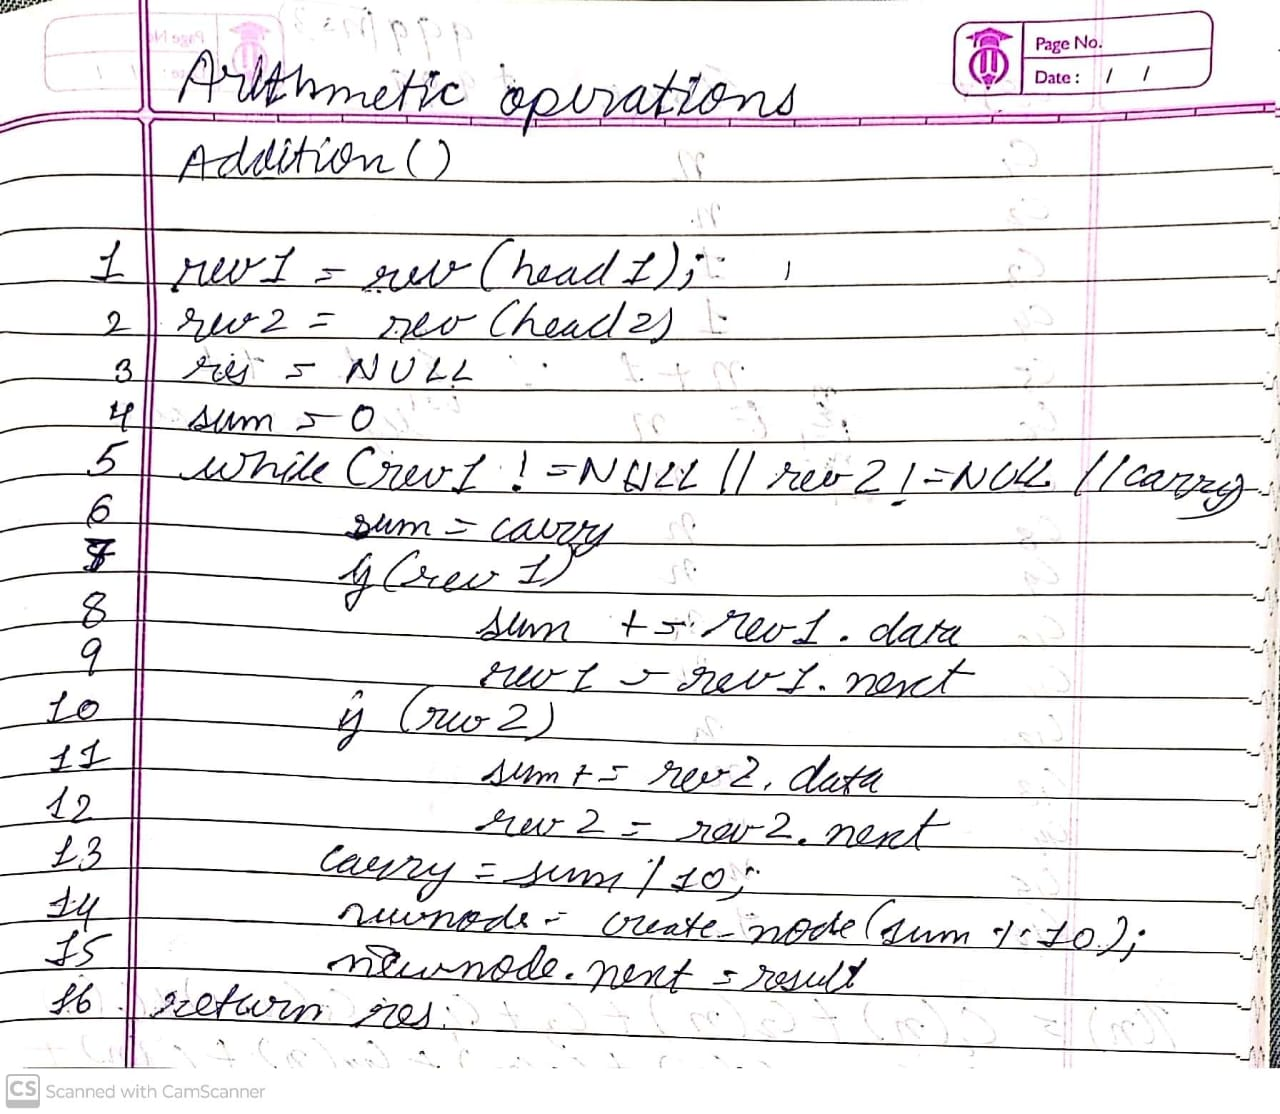 Page No.
Date : / /
Arithmetic operations
Addition()
1 rev1 = rev(head1);
2 rev2 = rev(head2)
3 res = NULL
4 sum = 0
5 while (rev1 != NULL || rev2 != NULL || carry
6 sum = carry
7 if(rev1)
8 sum += rev1.data
9 rev1 = rev1.next
10 if (rev2)
11 sum += rev2.data
12 rev2 = rev2.next
13 carry = sum / 10;
14 newnode = create_node(sum % 10);
15 newnode.next = result
16 return res.
CS Scanned with CamScanner